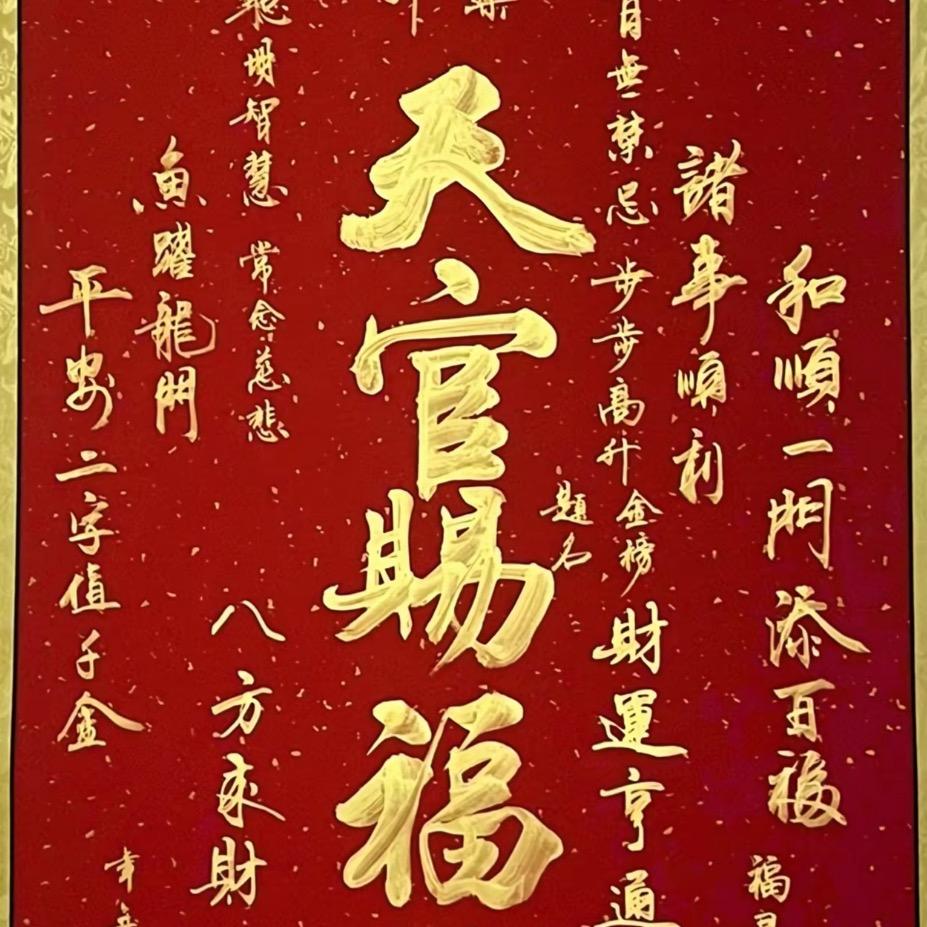 和順一門添百福
福
諸事順利
百無禁忌
步步高升
金榜題名
財運亨通
天官賜福
聰明智慧
常念慈悲
八方來財
魚躍龍門
平安二字值千金
幸